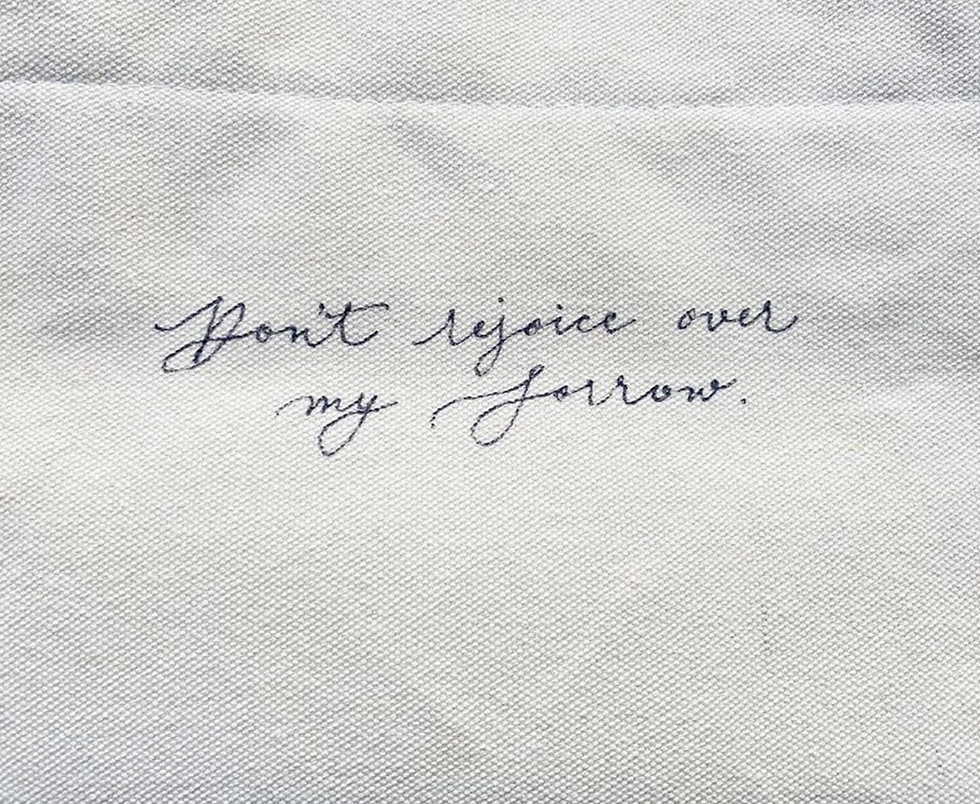 Don't rejoice over
my Sorrow.